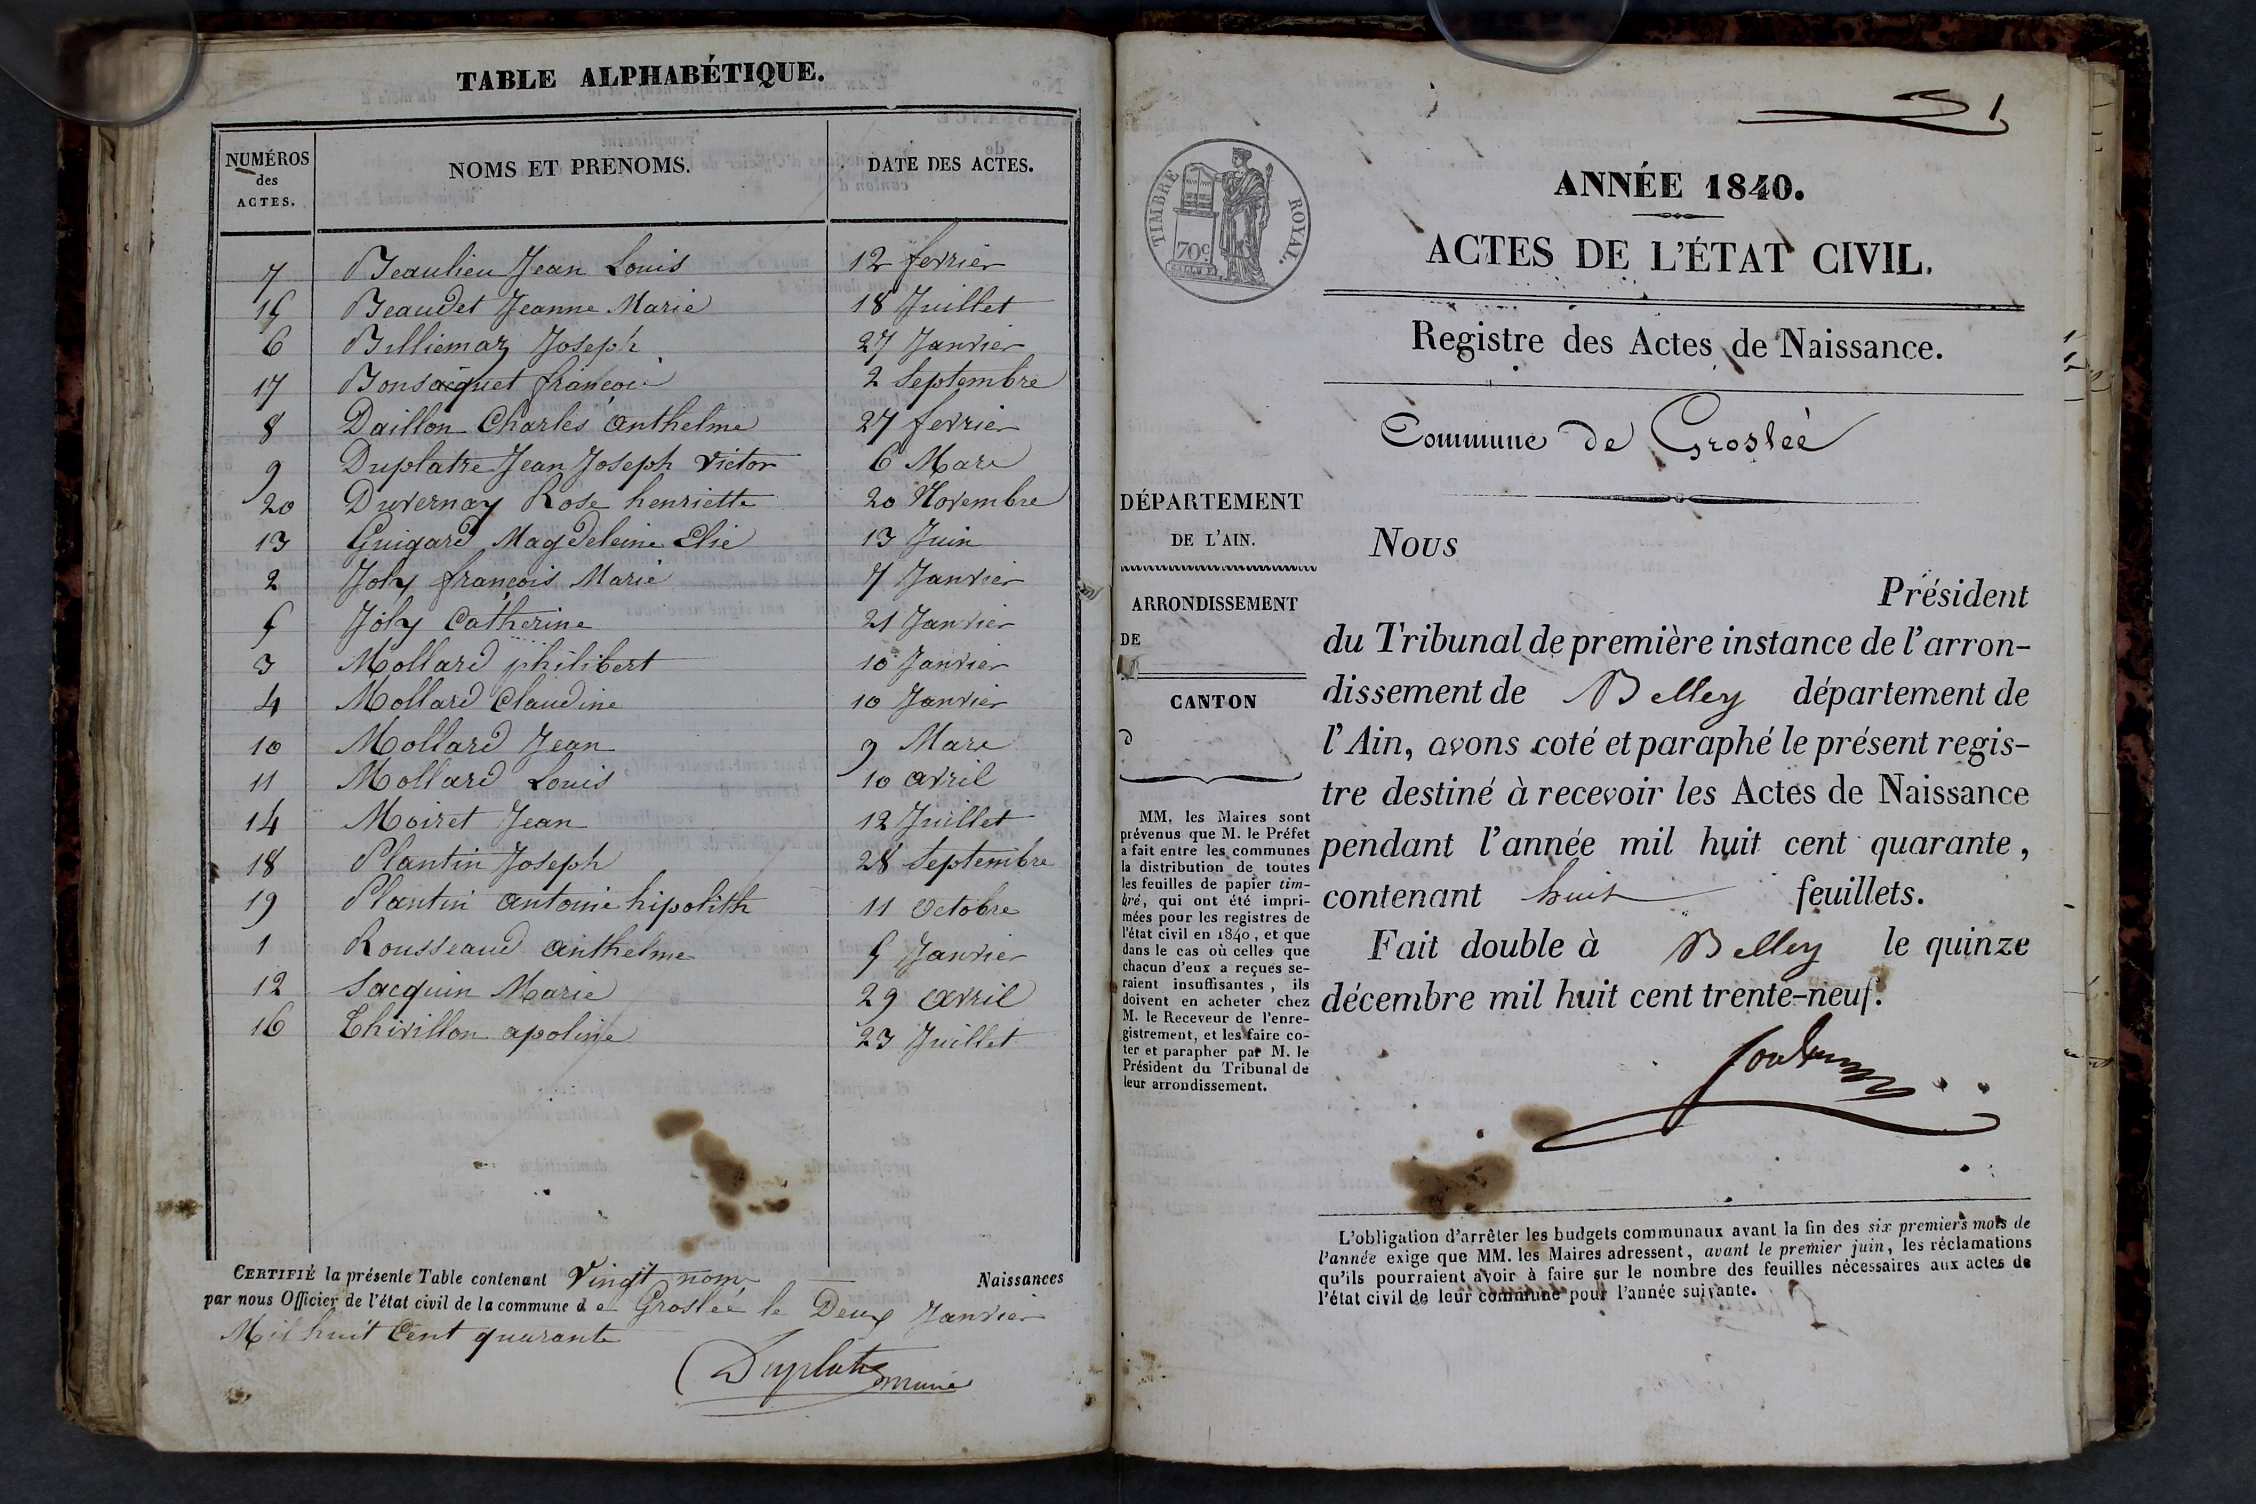 TABLE ALPHABÉTIQUE.
NUMÉROS des ACTES. NOMS ET PRENOMS. DATE DES ACTES.
7 Beaulieu Jean Louis 12 fevrier
15 Beaudet Jeanne Marie 18 Juillet
6 Billiemaz Joseph 27 Janvier
17 Bonsacquet françois 2 Septembre
8 Daillon Charles anthelme 27 fevrier
9 Duplatre Jean Joseph victor 6 Mars
20 Duvernay Rose henriette 20 Novembre
13 Guigard Magdeleine Elie 13 Juin
2 Joly françois Marie 7 Janvier
5 Joly Catherine 21 Janvier
3 Mollard philibert 10 Janvier
4 Mollard Claudine 10 Janvier
10 Mollard Jean 9 Mars
11 Mollard Louis 10 avril
14 Moiret Jean 12 Juillet
18 Plantin Joseph 28 Septembre
19 Plantin antoine hipolith 11 Octobre
1 Rousseaud anthelme 5 Janvier
12 Sacquin Marie 29 avril
16 Thivillon apoline 23 Juillet
CERTIFIÉ la présente Table contenant Vingt noms Naissances
par nous Officier de l'état civil de la commune de Groslée le Deux Janvier
Mil huit Cent quarante
Duplatre maire
1
TIMBRE ROYAL.
70c
ANNÉE 1840.
ACTES DE L'ÉTAT CIVIL.
Registre des Actes de Naissance.
Commune de Groslée
DÉPARTEMENT
DE L'AIN.
ARRONDISSEMENT
DE
CANTON
d
MM. les Maires sont
prévenus que M. le Préfet
a fait entre les communes
la distribution de toutes
les feuilles de papier tim-
bré, qui ont été impri-
mées pour les registres de
l'état civil en 1840, et que
dans le cas où celles que
chacun d'eux a reçues se-
raient insuffisantes, ils
doivent en acheter chez
M. le Receveur de l'enre-
gistrement, et les faire co-
ter et parapher par M. le
Président du Tribunal de
leur arrondissement.
Nous
Président
du Tribunal de première instance de l'arron-
dissement de Belley département de
l'Ain, avons coté et paraphé le présent regis-
tre destiné à recevoir les Actes de Naissance
pendant l'année mil huit cent quarante,
contenant huit feuillets.
Fait double à Belley le quinze
décembre mil huit cent trente-neuf.
L'obligation d'arrêter les budgets communaux avant la fin des six premiers mois de
l'année exige que MM. les Maires adressent, avant le premier juin, les réclamations
qu'ils pourraient avoir à faire sur le nombre des feuilles nécessaires aux actes de
l'état civil de leur commune pour l'année suivante.